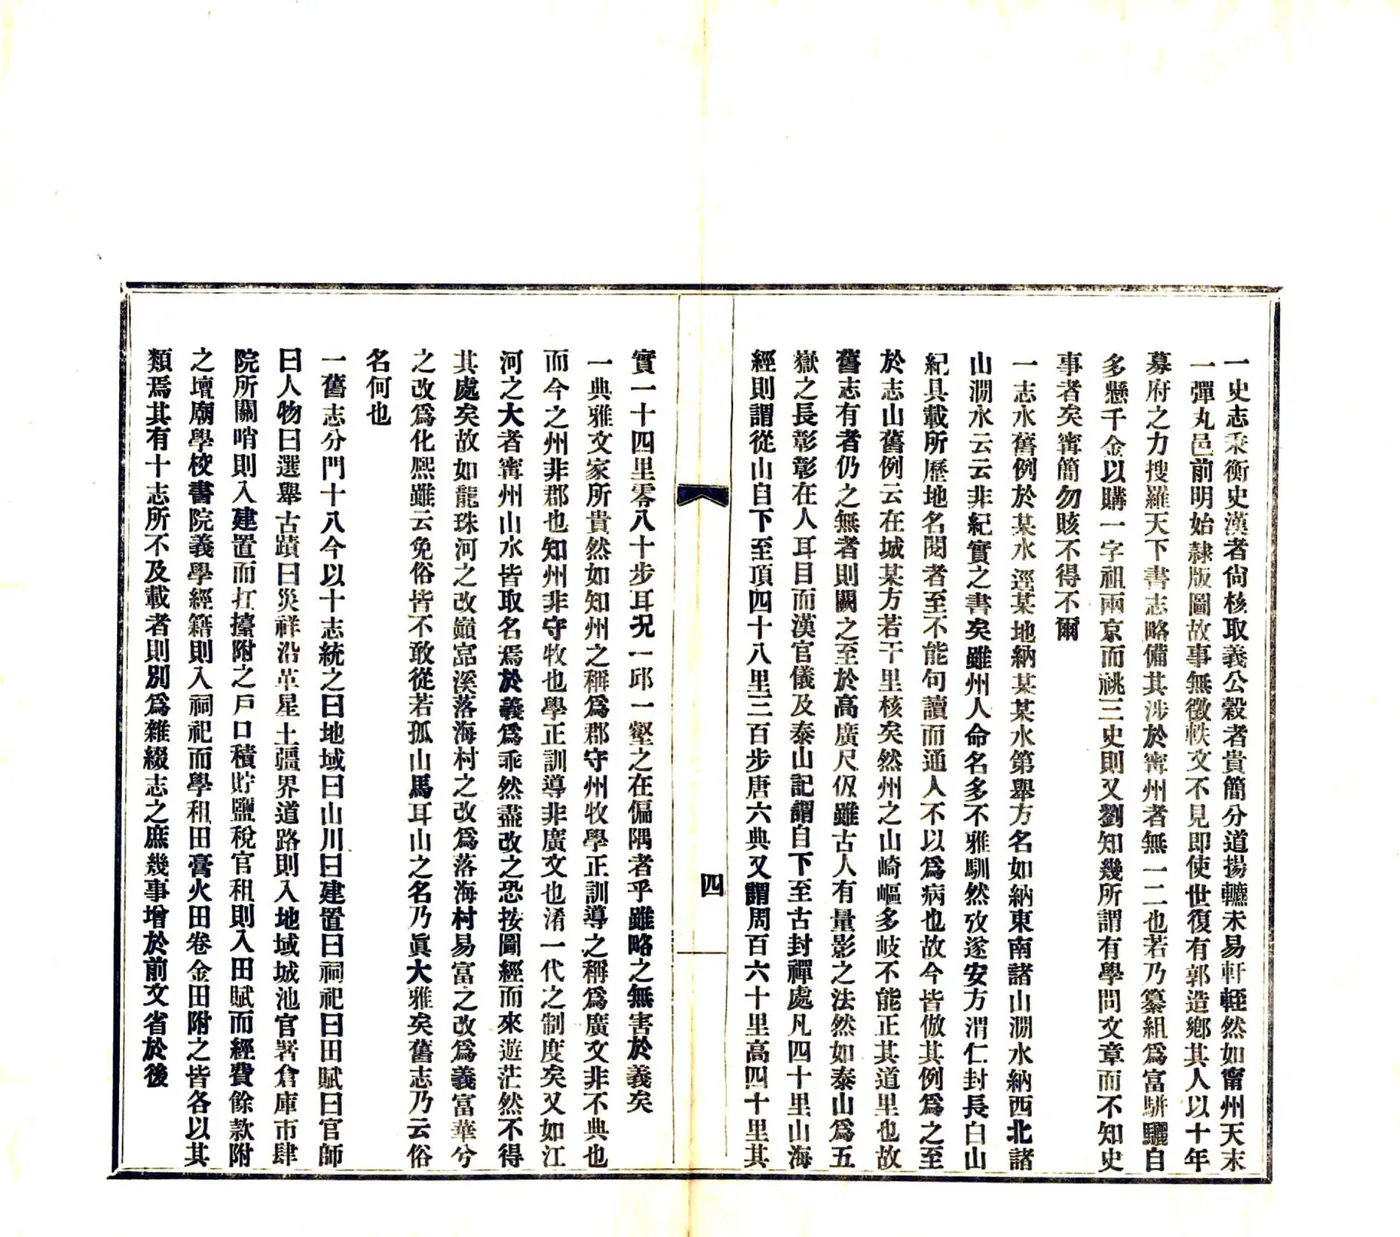 一史志乘衡史漢者尙核取義公穀者貴簡分道揚轣未易軒輊然如甯州天末
一彈丸邑前明始隸版圖故事無徵軼文不見即使世復有郭造鄉其人以十年
募府之力搜羅天下書志略備其涉於甯州者無一二也若乃纂組爲富駢驪自
多懸千金以購一字祖兩京而祧三史則又劉知幾所謂有學問文章而不知史
事者矣甯簡勿賅不得不爾
一志水舊例於某水逕某地納某某水第舉方名如納東南諸山澗水納西北諸
山澗水云云非紀實之書矣雖州人命名多不雅馴然攷遂安方渭仁封長白山
紀具載所歷地名閱者至不能句讀而通人不以爲病也故今皆倣其例爲之至
於志山舊例云在城某方若干里核矣然州之山崎嶇多岐不能正其道里也故
舊志有者仍之無者則闕之至於高廣尺仭雖古人有量影之法然如泰山爲五
嶽之長彰彰在人耳目而漢官儀及泰山記謂自下至古封禪處凡四十里山海
經則謂從山自下至頂四十八里三百步唐六典又謂周百六十里高四十里其
四
實一十四里零八十步耳况一邱一壑之在偏隅者乎雖略之無害於義矣
一典雅文家所貴然如知州之稱爲郡守州牧學正訓導之稱爲廣文非不典也
而今之州非郡也知州非守牧也學正訓導非廣文也淆一代之制度矣又如江
河之大者甯州山水皆取名焉於義爲乖然盡改之恐按圖經而來遊茫然不得
其處矣故如龍珠河之改巔富溪落海村之改爲落海村易富之改爲義富華兮
之改爲化熙雖云免俗皆不敢從若孤山馬耳山之名乃眞大雅矣舊志乃云俗
名何也
一舊志分門十八今以十志統之曰地域曰山川曰建置曰祠祀曰田賦曰官師
曰人物曰選舉古蹟曰災祥沿革星土疆界道路則入地域城池官署倉庫市肆
院所關哨則入建置而扛擡附之戶口積貯鹽稅官租則入田賦而經費餘款附
之壇廟學校書院義學經籍則入祠祀而學租田膏火田卷金田附之皆各以其
類焉其有十志所不及載者則別爲雜綴志之庶幾事增於前文省於後